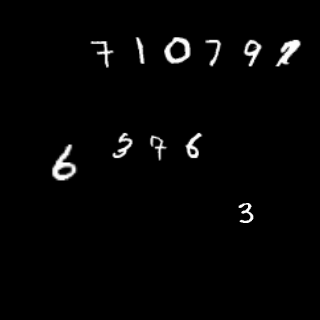 710792
6
576
3